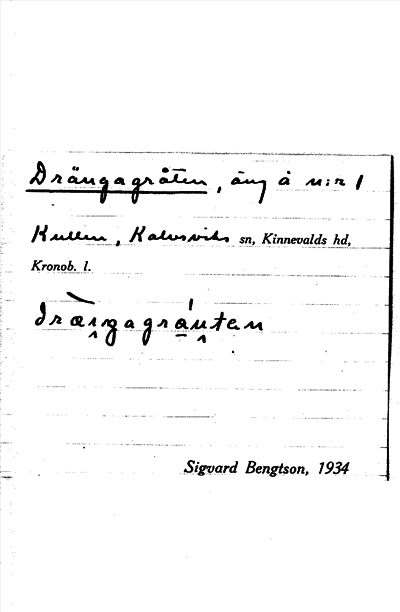 Drängagråten, äng å n:r 1
Kullen, Kalvsviks sn, Kinnevalds hd,
Kronob. l.
dræ̀i̯ŋagrá̱u̯tən
Sigvard Bengtson, 1934